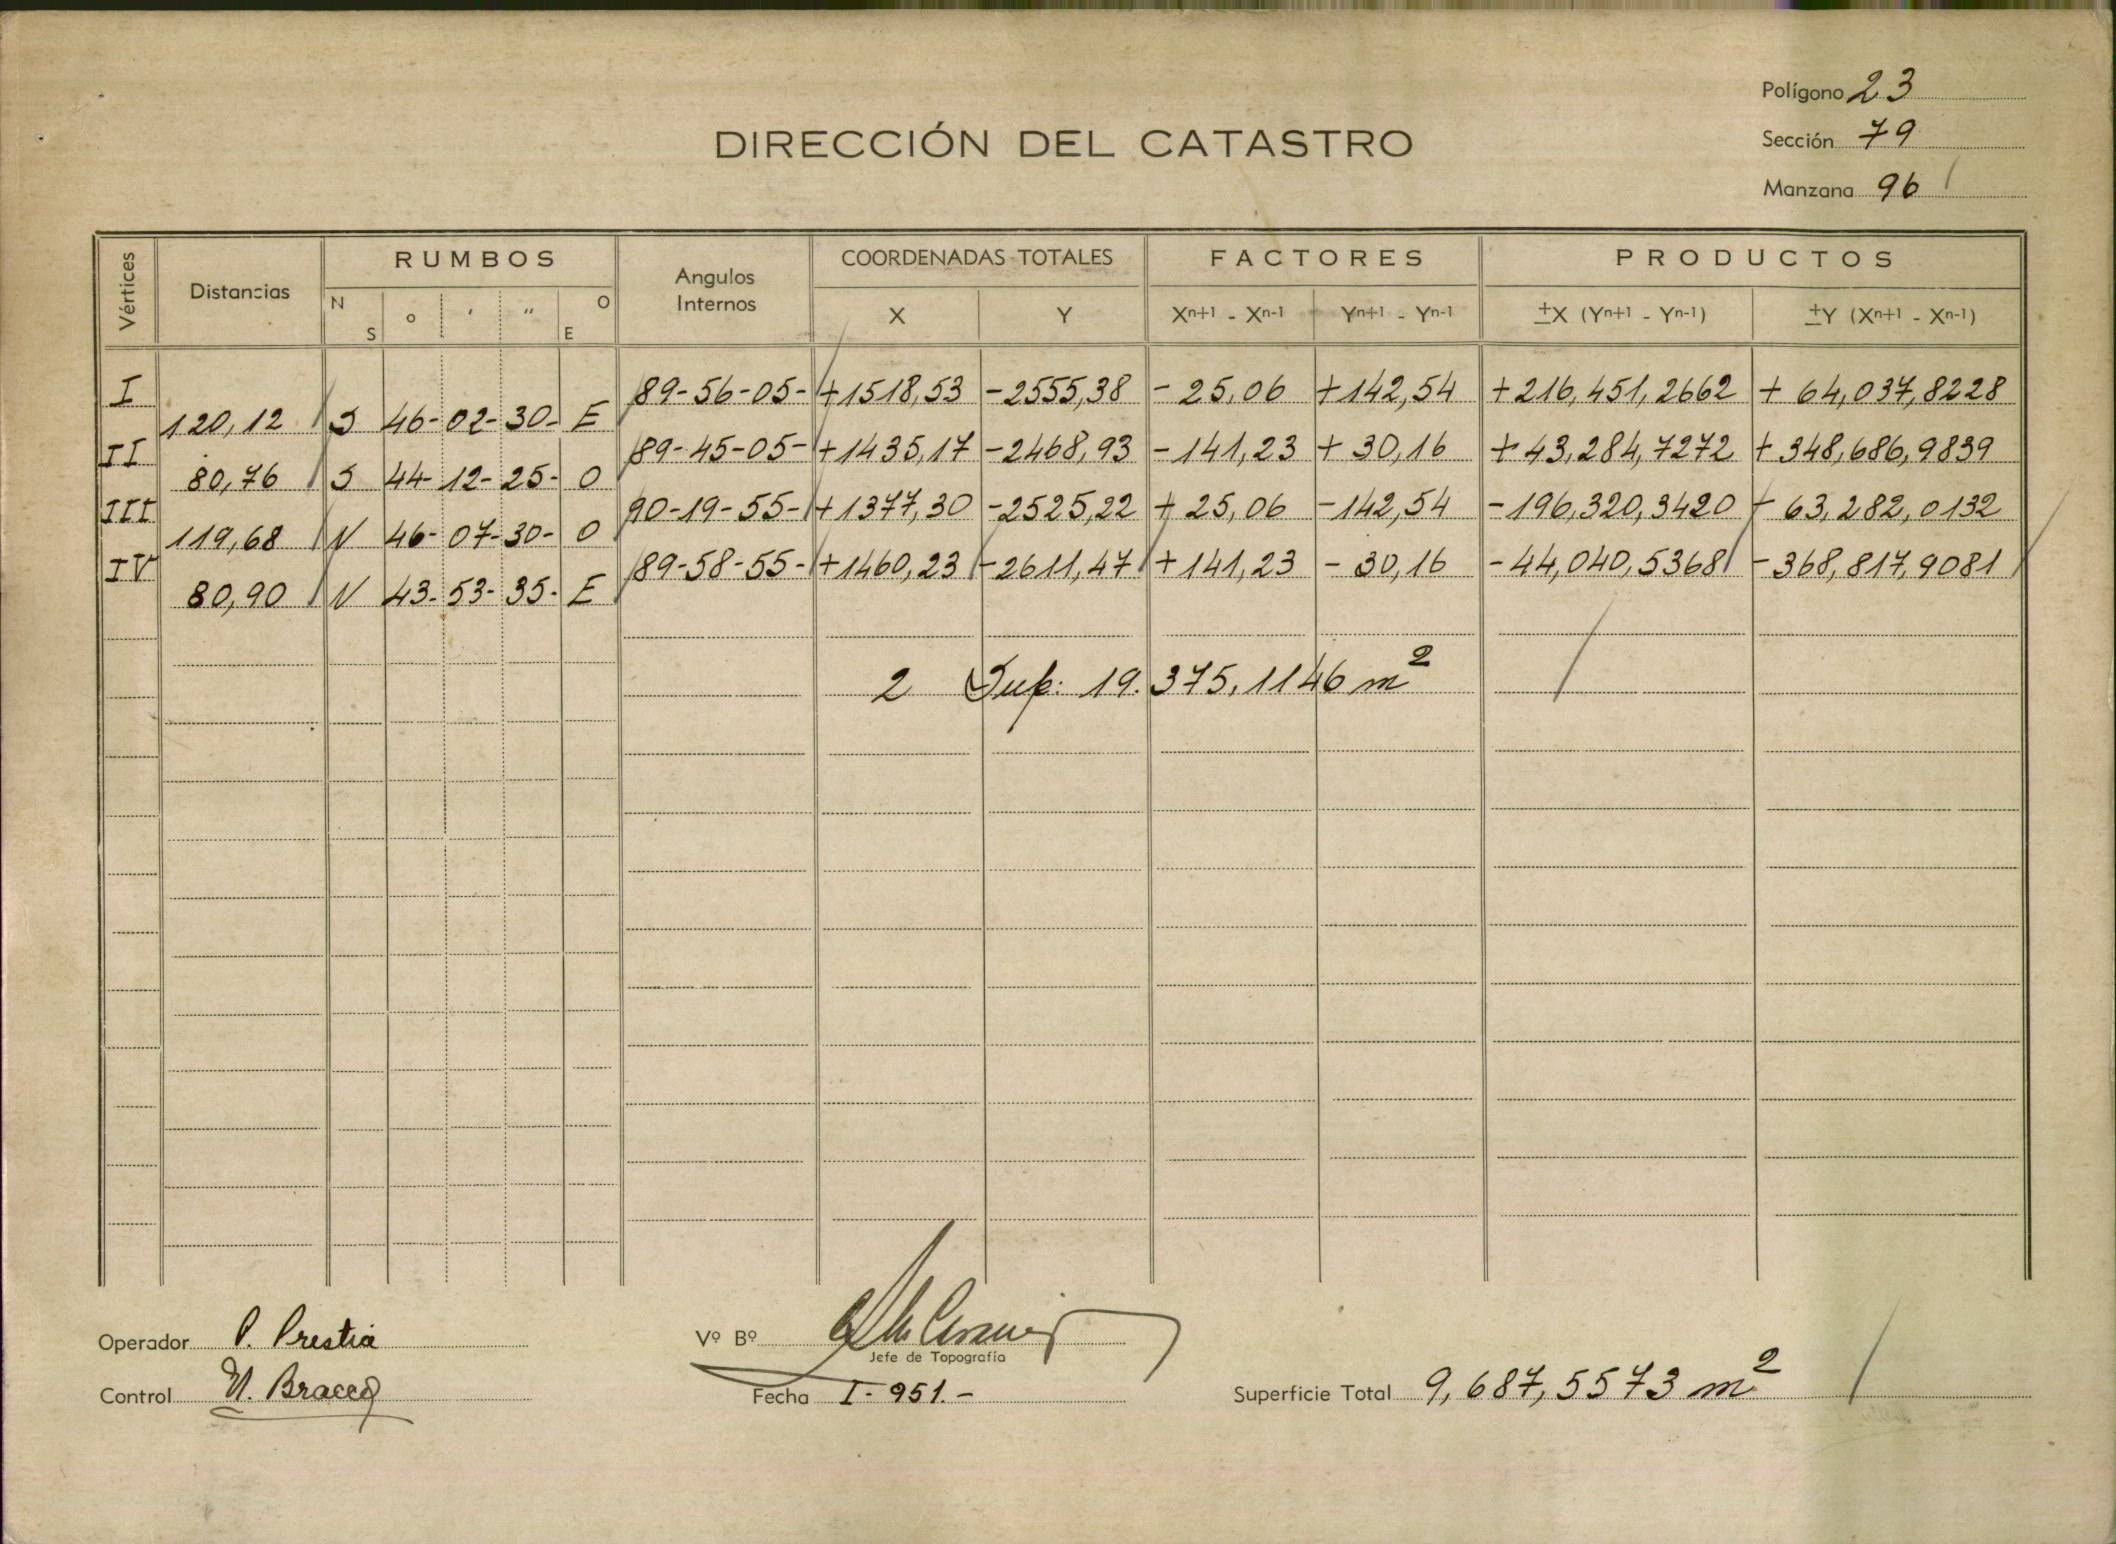 Polígono 23
DIRECCIÓN DEL CATASTRO
Sección 79
Manzana 96
Vértices Distancias RUMBOS Angulos Internos COORDENADAS TOTALES FACTORES PRODUCTOS
N S o ' " O E X Y Xn+1 - Xn-1 Yn+1 - Yn-1 ±X (Yn+1 - Yn-1) ±Y (Xn+1 - Xn-1)
I 89-56-05- +1518,53 -2555,38 -25,06 +142,54 +216,451,2662 + 64,037,8228
120,12 S 46-02-30- E
II 89-45-05- +1435,17 -2468,93 -141,23 + 30,16 + 43,284,7272 + 348,686,9839
80,76 S 44-12-25- O
III 90-19-55- +1377,30 -2525,22 + 25,06 -142,54 -196,320,3420 - 63,282,0132
119,68 N 46-07-30- O
IV 89-58-55- +1460,23 -2611,47 +141,23 - 30,16 -44,040,5368 -368,817,9081
80,90 N 43-53-35- E
2 Sup: 19.375,1146 m2
Operador P. Prestia
Vº Bº
Jefe de Topografía
Control N. Bracco
Fecha I-951.-
Superficie Total 9,687,5573 m2